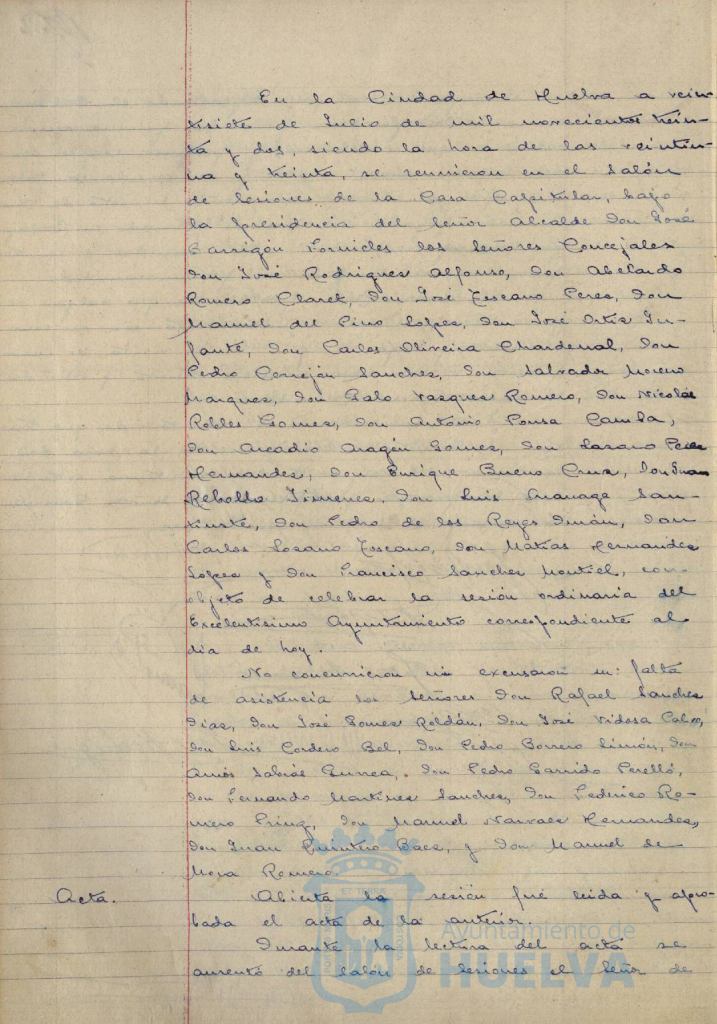 En la Ciudad de Huelva a vein-
tisiete de Julio de mil novecientos trein-
ta y dos, siendo la hora de las veintiu-
na y treinta, se reunieron en el salón
de sesiones de la Casa Capitular, bajo
la presidencia del Señor Alcalde don José
Barrigón Fornieles los señores Concejales
don José Rodriguez Alfonso, don Abelardo
Romero Claret, don José Toscano Perez, don
Manuel del Pino Lopez, don José Ortiz In-
fante, don Carlos Oliveira Chardenal, don
Pedro Cerrejón Sanchez, don Salvador Moreno
Marquez, don Galo Vazquez Romero, don Nicolás
Robles Gomez, don Antonio Pousa Camba,
don Arcadio Aragón Gomez, don Lazaro Perez
Hernandez, don Enrique Bueno Cruz, don Juan
Rebollo Jimenez, don Luis
don Pedro de los Reyes don
Carlos Lozano Toscano, don Matias Hernandez
Lopez y don Francisco Sanchez Montiel, con
objeto de celebrar la sesión ordinaria del
Excelentisimo Ayuntamiento correspondiente al
dia de hoy.
No concurrieron ni excusaron su falta
de asistencia los señores don Rafael Sanchez
Diaz, don José Gomez Roldán, don José Vidosa Calvo,
don Luis Cordero Bel, don Pedro Borrero Limón, don
Amós Sabrás Gurrea, don Pedro Garrido Perelló,
don Fernando Martinez Sanchez, don Federico Ro-
mero don Manuel Narvaez Hernandez,
don Juan Quintero Baez, y don Manuel de
Mora Romero.
Acta.
Abierta la sesión fué leida y apro-
bada el acta de la anterior.
Durante la lectura del acta se
ausentó del salón de sesiones el Señor de
Ayuntamiento de
HUELVA